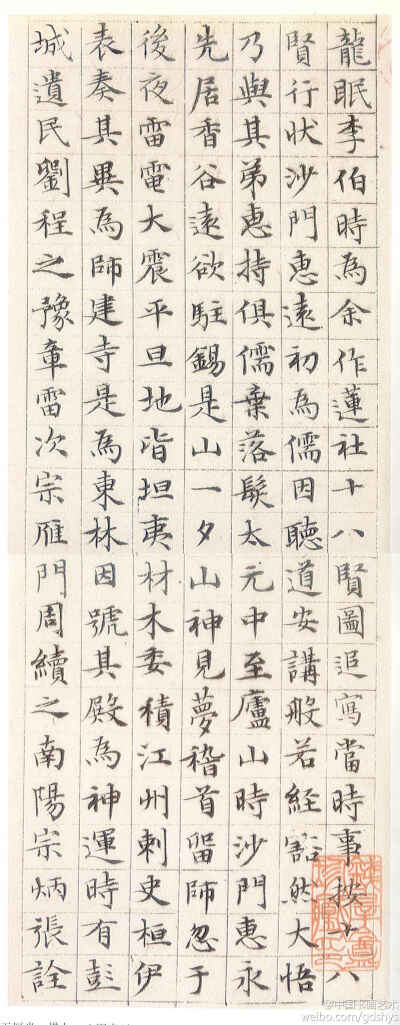 龍眠李伯時為余作蓮社十八賢圖追寫當時事按十八
賢行狀沙門惠遠初為儒因聽道安講般若經豁然大悟
乃與其弟惠持俱儒棄落髮太元中至廬山時沙門惠永
先居香谷遠欲駐錫是山一夕山神見夢稽首留師忽于
後夜雷電大震平旦地皆坦夷材木委積江州刺史桓伊
表奏其異為師建寺是為東林因號其殿為神運時有彭
城遺民劉程之豫章雷次宗雁門周續之南陽宗炳張詮
@中国书画艺术
weibo.com/gdshys